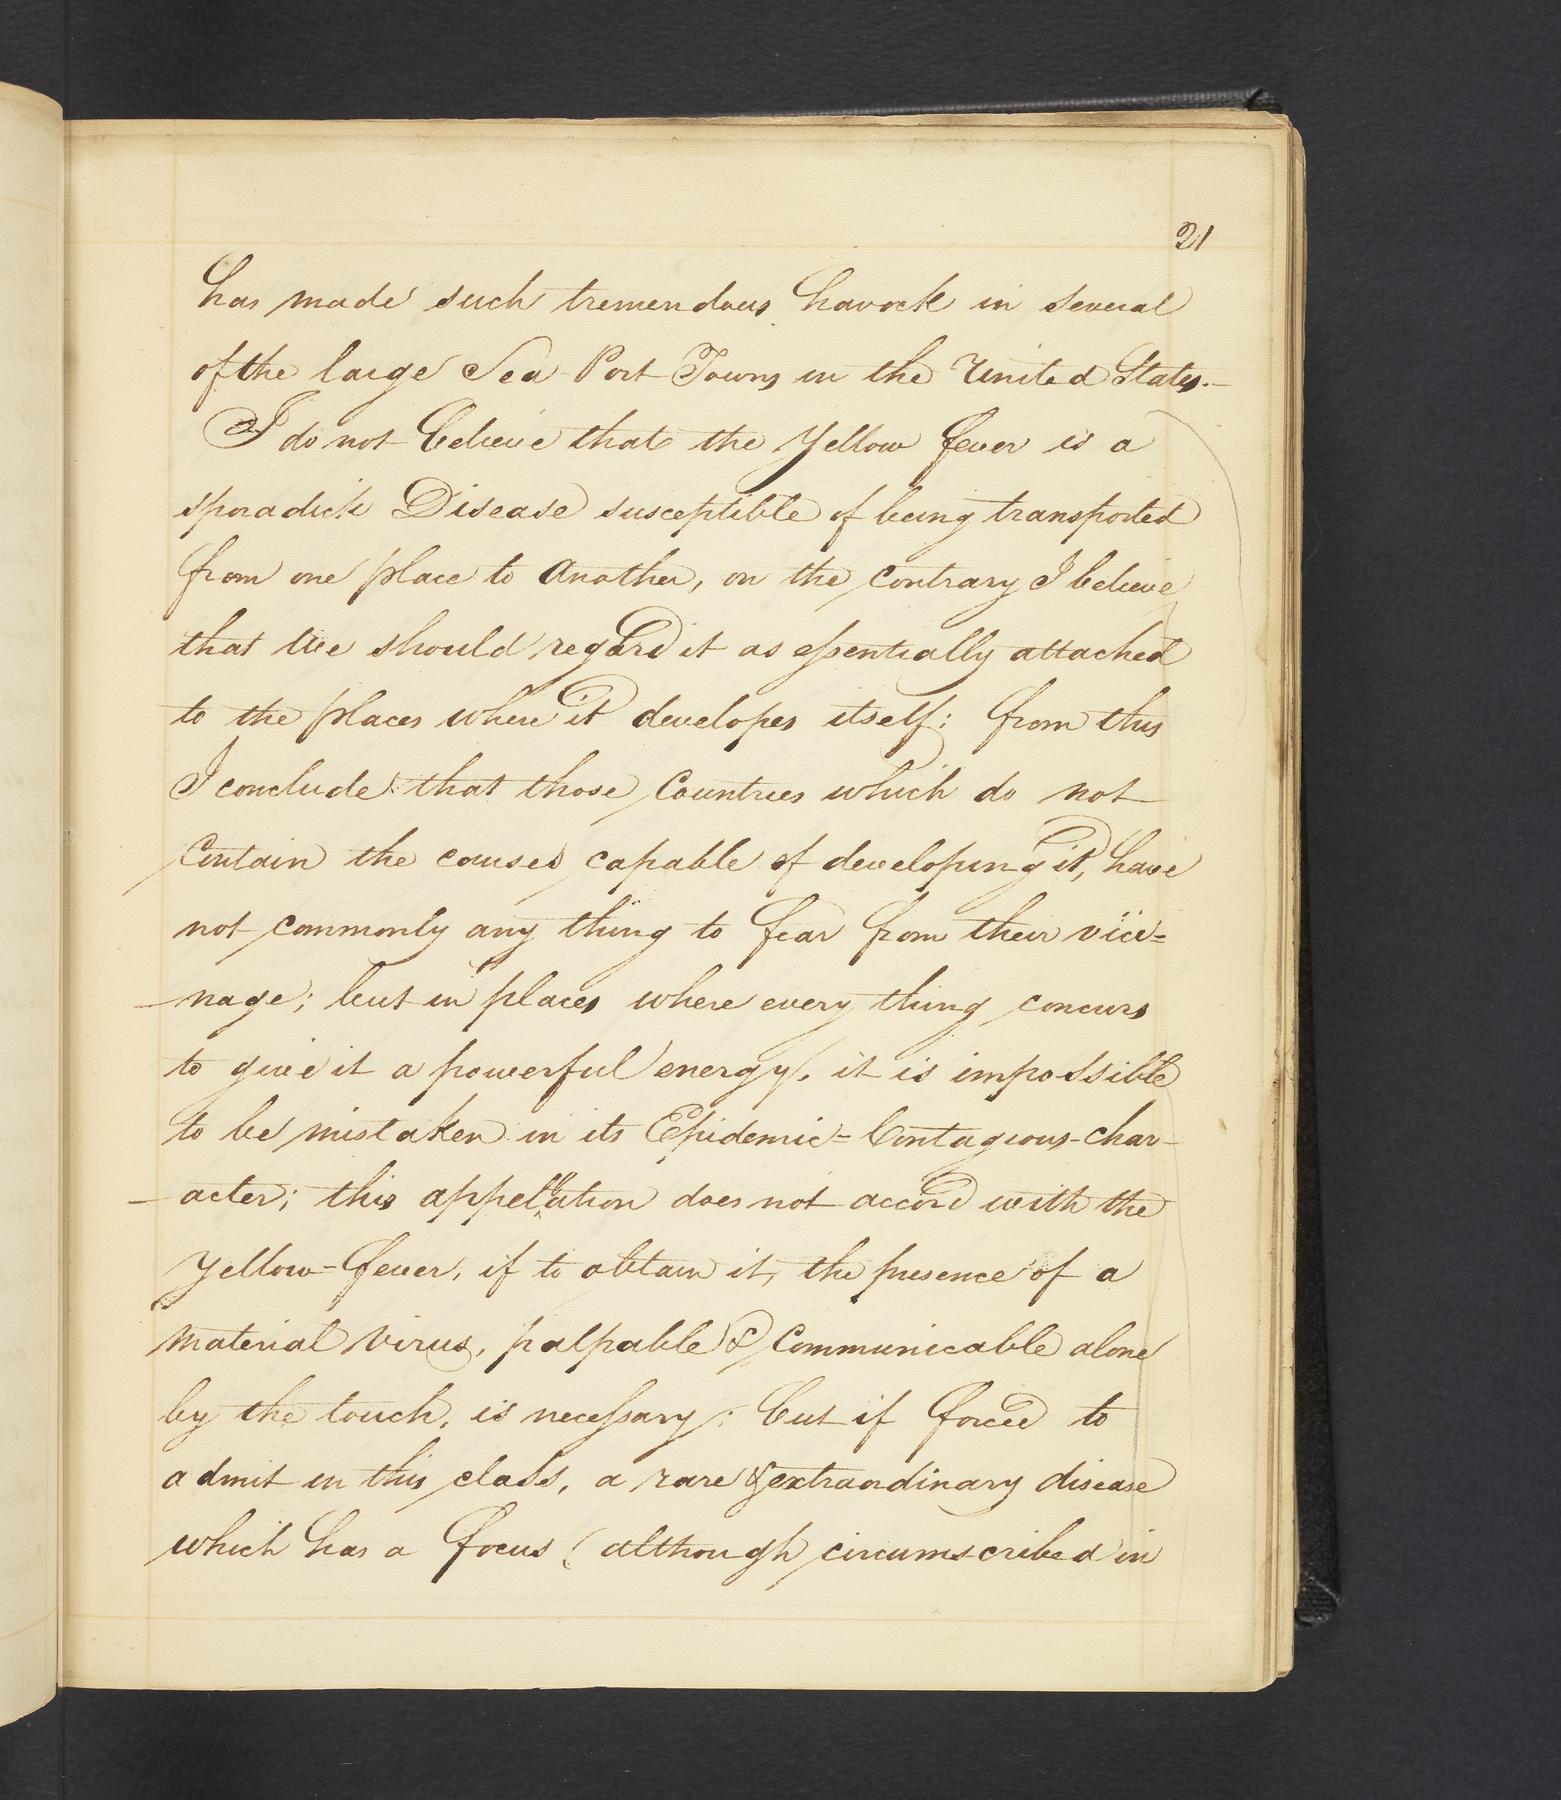 21
has made such tremendous havock in several
of the large Sea Port Towns in the United States.—
I do not believe that the Yellow fever is a
sporadick Disease susceptible of being transported
from one place to another, on the contrary I believe
that we should regard it as essentially attached
to the places where it developes itself: from this
I conclude that those Countries which do not
contain the causes capable of developing it, have
not commonly any thing to fear from their vici=
nage; but in places where every thing concurs
to give it a powerful energy, it is impossible
to be mistaken in its Epidemic=Contagious-char-
-acter; this appellation does not accord with the
Yellow-fever, if to obtain it, the presence of a
material virus, palpable & communicable alone
by the touch, is necessary: but if forced to
admit in this class, a rare & extraordinary disease
which has a focus (although circumscribed in